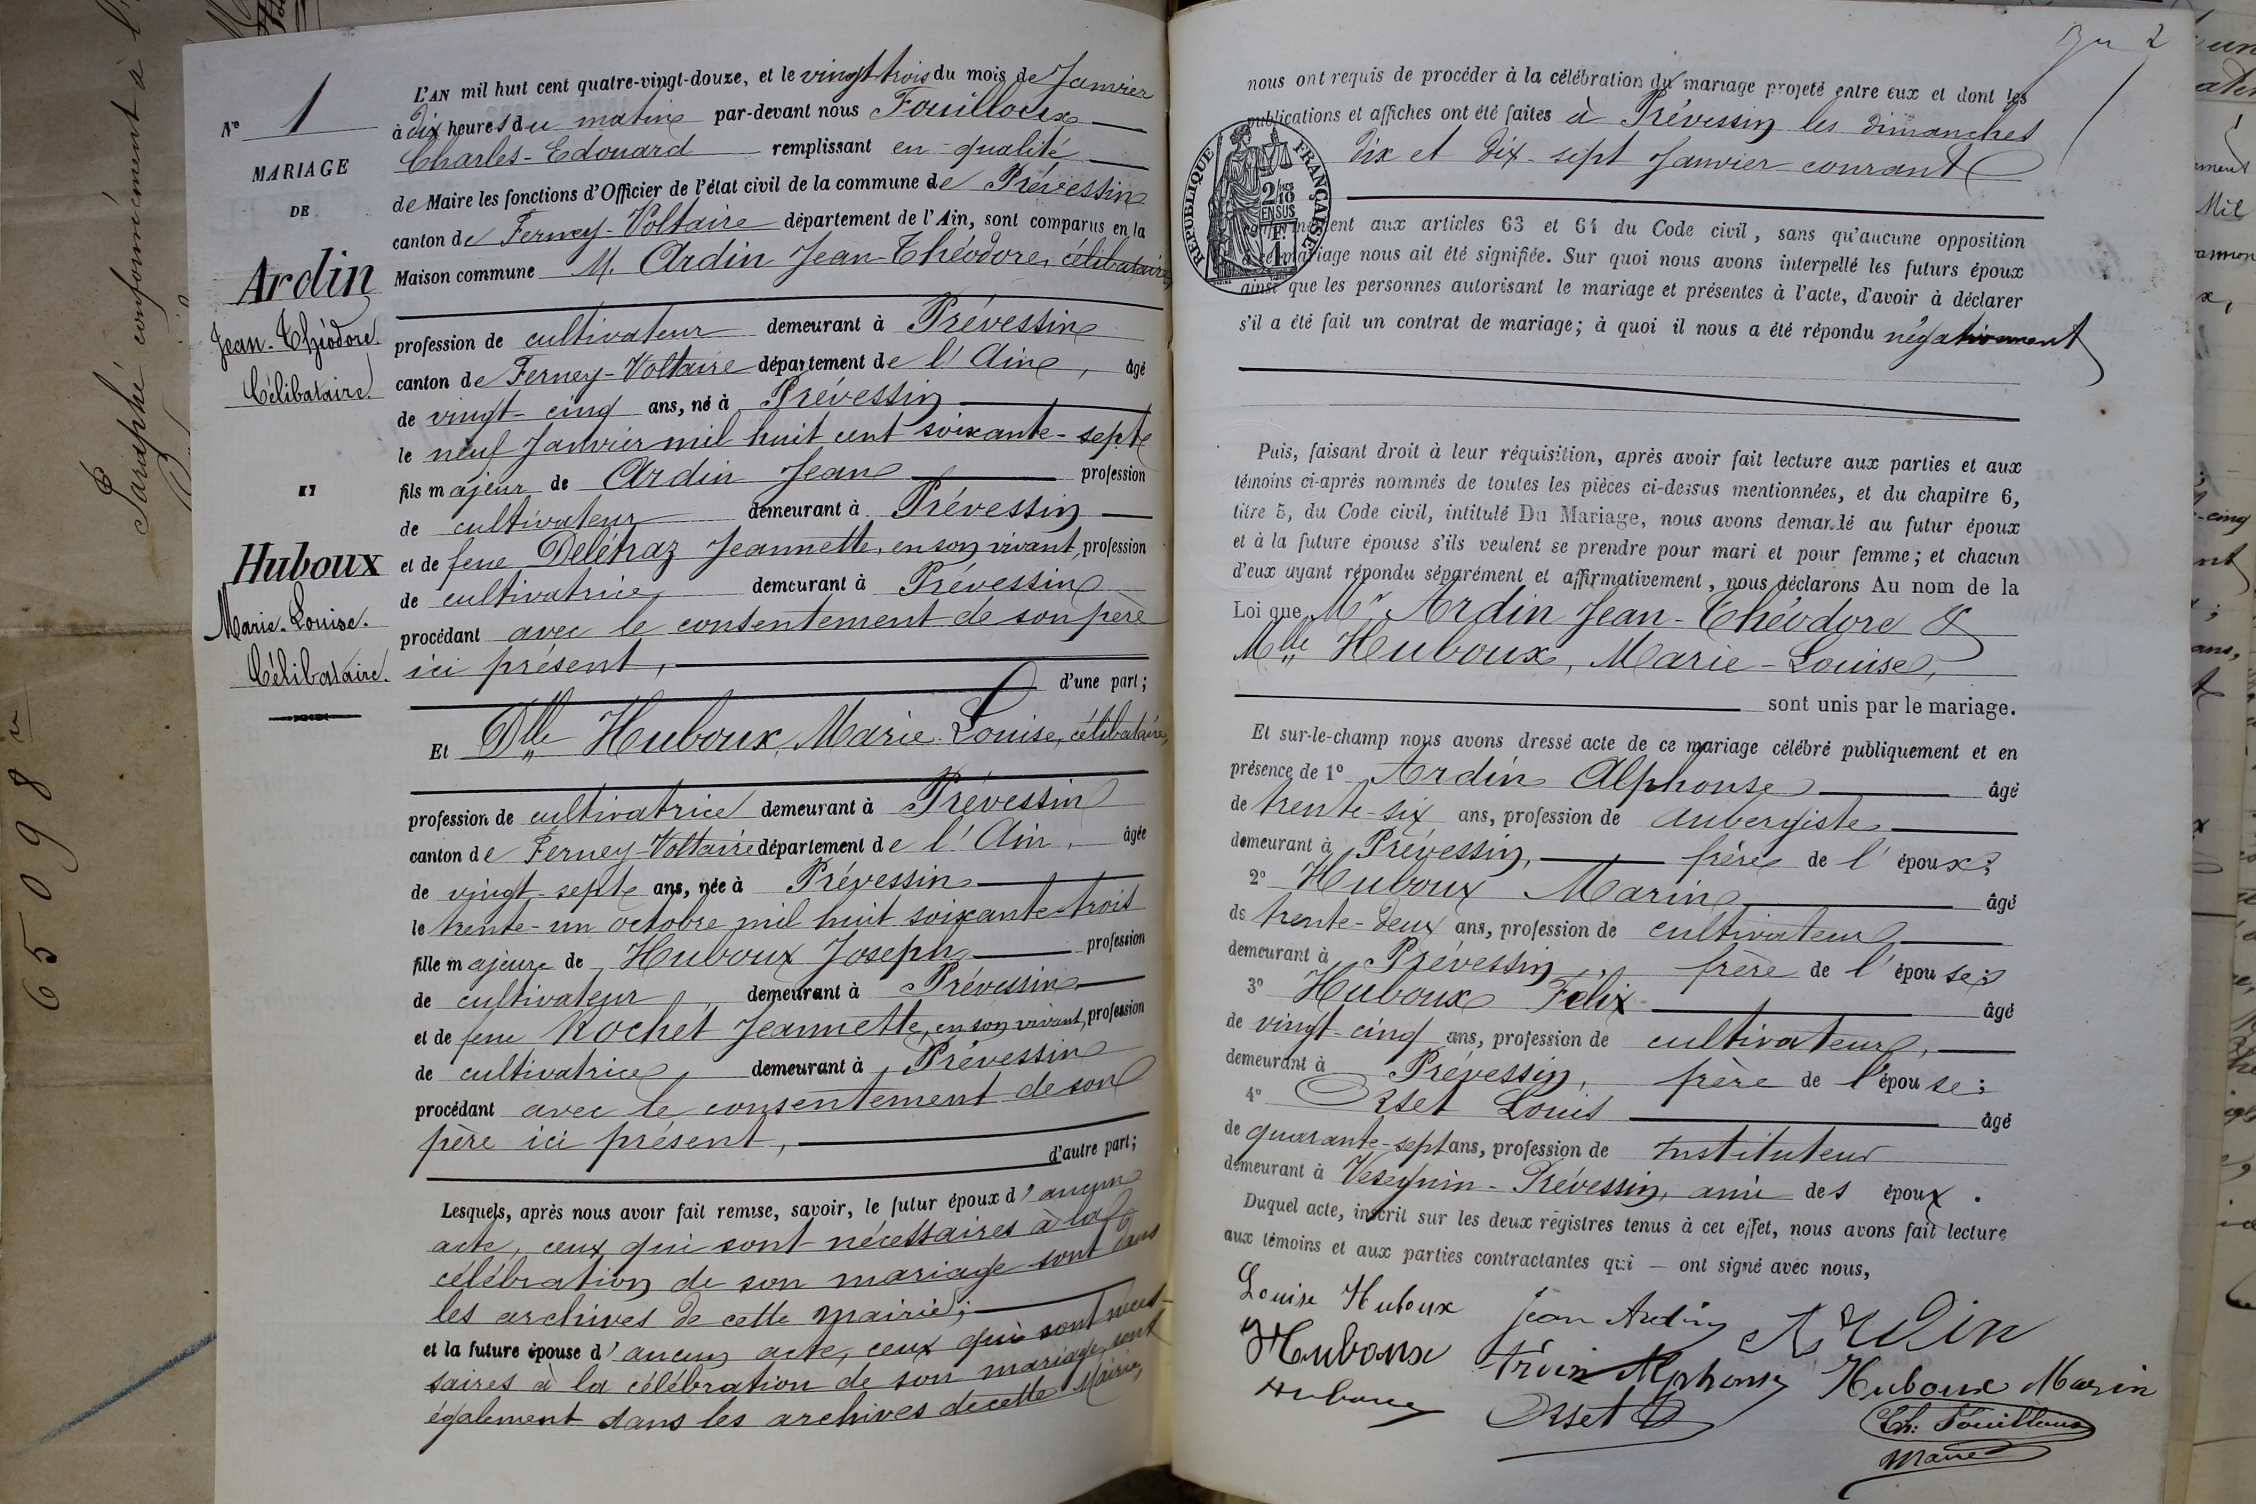 Nº 1
MARIAGE
DE
Ardin
Jean-Théodore.
Célibataire.
ET
Huboux
Marie-Louise.
Célibataire.
L'AN mil huit cent quatre-vingt-douze, et le vingt trois du mois de Janvier
à dix heures du matin par-devant nous Fouilloux
Charles-Edouard remplissant en qualité
de Maire les fonctions d'Officier de l'état civil de la commune de Prévessin
canton de Ferney-Voltaire département de l'Ain, sont comparus en la
Maison commune M. Ardin Jean-Théodore, célibataire,
profession de cultivateur demeurant à Prévessin
canton de Ferney-Voltaire département de l'Ain, âgé
de vingt-cinq ans, né à Prévessin
le neuf Janvier mil huit cent soixante-sept
fils majeur de Ardin Jean profession
de cultivateur demeurant à Prévessin
et de feue Delétraz Jeannette, en son vivant, profession
de cultivatrice, demeurant à Prévessin
procédant avec le consentement de son père
ici présent,
d'une part;
Et Dlle Huboux, Marie-Louise, célibataire,
profession de cultivatrice demeurant à Prévessin
canton de Ferney-Voltaire département de l'Ain, âgée
de vingt-sept ans, née à Prévessin
le trente-un octobre mil huit soixante-trois
fille majeure de Huboux Joseph profession
de cultivateur, demeurant à Prévessin
et de feue Rochet Jeannette, en son vivant, profession
de cultivatrice, demeurant à Prévessin
procédant avec le consentement de son
père ici présent,
d'autre part;
Lesquels, après nous avoir fait remise, savoir, le futur époux d'aucun
acte, ceux qui sont nécessaires à la
célébration de son mariage sont dans
les archives de cette mairie;
et la future épouse d'aucun acte, ceux qui sont néces-
saires à la célébration de son mariage, sont
également dans les archives de cette Mairie,
2
nous ont requis de procéder à la célébration du mariage projeté entre eux et dont les
publications et affiches ont été faites à Prévessin les dimanches
dix et dix-sept Janvier courant
RÉPUBLIQUE FRANÇAISE
2/10
EN SUS
1
aux articles 63 et 64 du Code civil, sans qu'aucune opposition
mariage nous ait été signifiée. Sur quoi nous avons interpellé les futurs époux
ainsi que les personnes autorisant le mariage et présentes à l'acte, d'avoir à déclarer
s'il a été fait un contrat de mariage; à quoi il nous a été répondu négativement
Puis, faisant droit à leur réquisition, après avoir fait lecture aux parties et aux
témoins ci-après nommés de toutes les pièces ci-dessus mentionnées, et du chapitre 6,
titre 5, du Code civil, intitulé Du Mariage, nous avons demandé au futur époux
et à la future épouse s'ils veulent se prendre pour mari et pour femme; et chacun
d'eux ayant répondu séparément et affirmativement, nous déclarons Au nom de la
Loi que Mr Ardin Jean-Théodore &
Mlle Huboux, Marie-Louise,
sont unis par le mariage.
Et sur-le-champ nous avons dressé acte de ce mariage célébré publiquement et en
présence de 1º Ardin Alphonse âgé
de trente-six ans, profession de aubergiste
demeurant à Prévessin, frère de l'époux;
2º Huboux Marin âgé
de trente-deux ans, profession de cultivateur
demeurant à Prévessin, frère de l'épouse;
3º Huboux Félix âgé
de vingt-cinq ans, profession de cultivateur,
demeurant à Prévessin, frère de l'épouse;
4º Orset Louis âgé
de quarante-sept ans, profession de instituteur
demeurant à Vesegnin-Prévessin, ami des époux.
Duquel acte, inscrit sur les deux registres tenus à cet effet, nous avons fait lecture
aux témoins et aux parties contractantes qui — ont signé avec nous,
Louise Huboux Jean Ardin Ardin
Huboux Alphonse Huboux Marin
Huboux Orset Ch: Fouilloux
Maire
Paraphé conformément à l'
65098